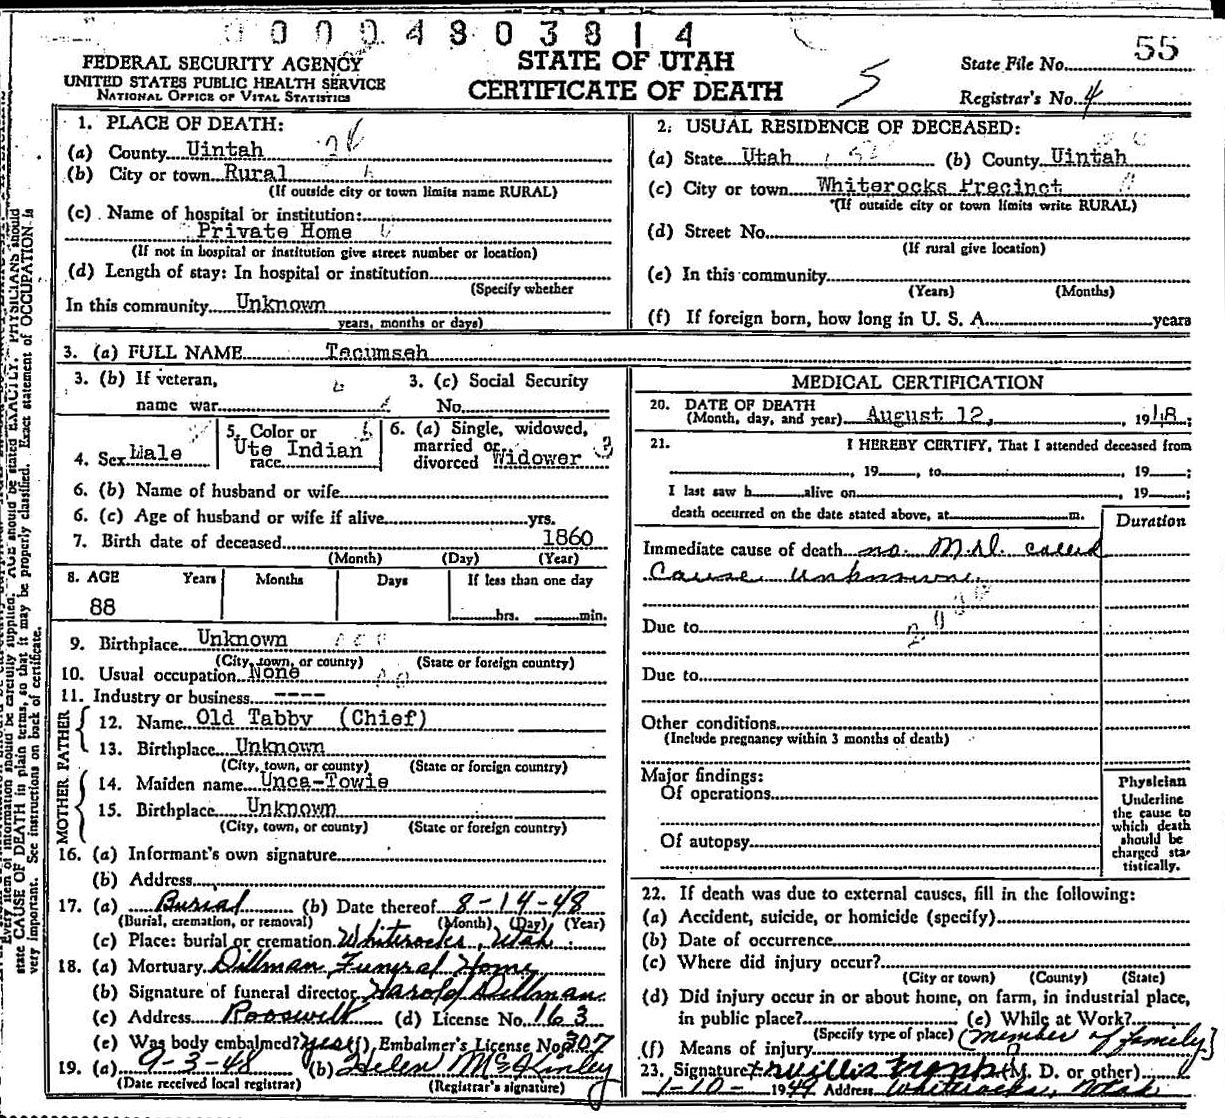 0004803814
FEDERAL SECURITY AGENCY
UNITED STATES PUBLIC HEALTH SERVICE
NATIONAL OFFICE OF VITAL STATISTICS
STATE OF UTAH
CERTIFICATE OF DEATH
5
State File No. 55
Registrar's No. 4
1. PLACE OF DEATH:
(a) County Uintah
(b) City or town Rural
(If outside city or town limits name RURAL)
(c) Name of hospital or institution:
Private Home
(If not in hospital or institution give street number or location)
(d) Length of stay: In hospital or institution
(Specify whether
In this community Unknown
years, months or days)
2. USUAL RESIDENCE OF DECEASED:
(a) State Utah (b) County Uintah
(c) City or town Whiterocks Precinct
(If outside city or town limits write RURAL)
(d) Street No.
(If rural give location)
(e) In this community
(Years) (Months)
(f) If foreign born, how long in U. S. A. years
3. (a) FULL NAME Tacumsah
3. (b) If veteran,
name war
3. (c) Social Security
No.
4. Sex Male
5. Color or
race Ute Indian
6. (a) Single, widowed,
married or
divorced Widower
6. (b) Name of husband or wife
6. (c) Age of husband or wife if alive yrs.
7. Birth date of deceased 1860
(Month) (Day) (Year)
8. AGE Years Months Days If less than one day
88 hrs. min.
9. Birthplace Unknown
(City, town, or county) (State or foreign country)
10. Usual occupation None
11. Industry or business ----
FATHER
12. Name Old Tabby (Chief)
13. Birthplace Unknown
(City, town, or county) (State or foreign country)
MOTHER
14. Maiden name Unca-Towie
15. Birthplace Unknown
(City, town, or county) (State or foreign country)
16. (a) Informant's own signature
(b) Address
17. (a) Burial (b) Date thereof 8-14-48
(Burial, cremation, or removal) (Month) (Day) (Year)
(c) Place: burial or cremation Whiterocks, Utah
18. (a) Mortuary Dillman Funeral Home
(b) Signature of funeral director Harold Dillman
(c) Address Roosevelt (d) License No. 163
(e) Was body embalmed? yes (f) Embalmer's License No. 307
19. (a) 9-3-48 (b) Helen McKinley
(Date received local registrar) (Registrar's signature)
MEDICAL CERTIFICATION
20. DATE OF DEATH
(Month, day, and year) August 12, 1948;
21. I HEREBY CERTIFY, That I attended deceased from
, 19 , to , 19 ;
I last saw h alive on , 19 ;
death occurred on the date stated above, at m.
Duration
Immediate cause of death no. M.D. called
Cause unknown.
Due to
Due to
Other conditions
(Include pregnancy within 3 months of death)
Major findings:
Of operations
Of autopsy
Physician
Underline
the cause to
which death
should be
charged sta-
tistically.
22. If death was due to external causes, fill in the following:
(a) Accident, suicide, or homicide (specify)
(b) Date of occurrence
(c) Where did injury occur?
(City or town) (County) (State)
(d) Did injury occur in or about home, on farm, in industrial place,
in public place? (e) While at Work?
(Specify type of place) (member of family)
(f) Means of injury
23. Signature (M. D. or other)
1-10-1949 Address Whiterocks, Utah
Every item of information should be carefully supplied. AGE should be stated EXACTLY. PHYSICIANS should
state CAUSE OF DEATH in plain terms, so that it may be properly classified. Exact statement of OCCUPATION is
very important. See instructions on back of certificate.